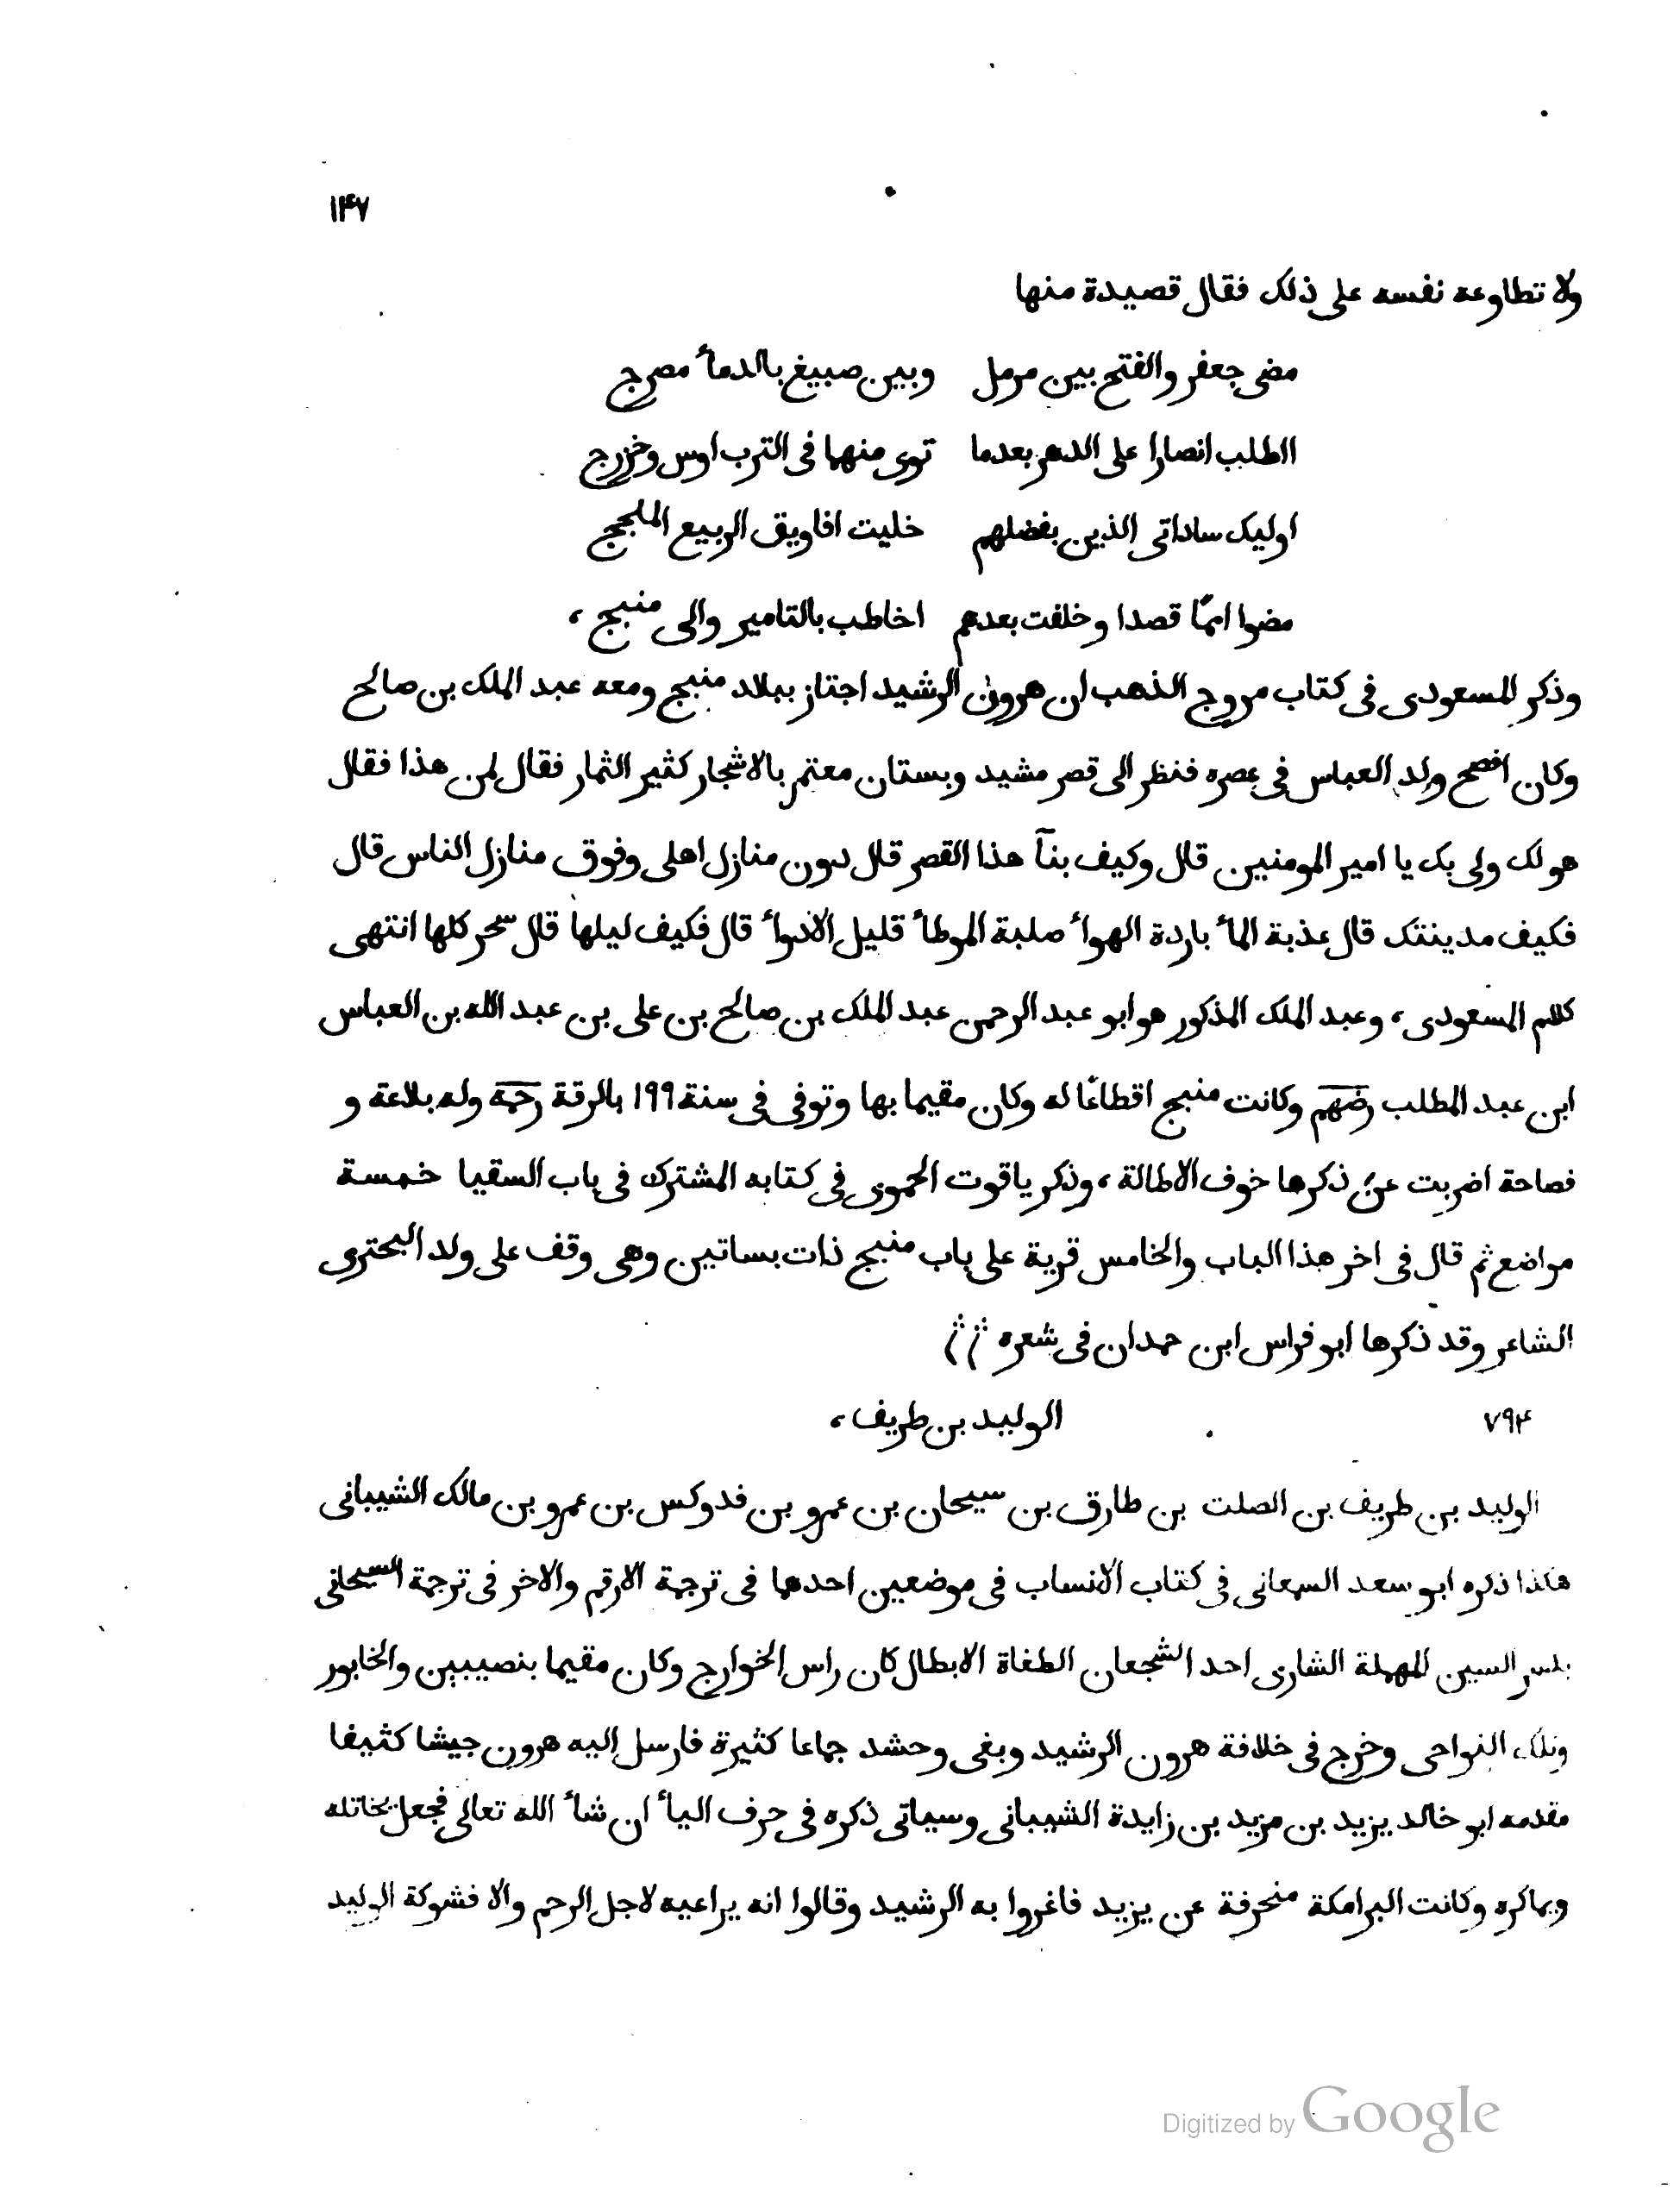 ١۴٧
ولا تطاوعه نفسه على ذلك فقال قصيدة منها
مضى جعفر والفتح بين مرمل وبين صبيغ بالدمأ مصرج
ااطلب انصارا على الدهر بعدما توى منهما فى الترب اوس وخزرج
اوليك ساداتى الذين بفضلهم خليت افاويق الربيع الملجج
مضوا اممًا قصدا وخلفت بعدهم اخاطب بالتامير والى منبج ،
وذكر المسعودى فى كتاب مروج الذهب ان هرون الرشيد اجتاز ببلاد منبج ومعه عبد الملك بن صالح
وكان افصح ولد العباس فى عصره فنظر الى قصر مشيد وبستان معتمر بالاشجار كثير الثمار فقال لمن هذا فقال
هو لك ولى بك يا امير المومنين قال وكيف بنآ هذا القصر قال دون منازل اهلى وفوق منازل الناس قال
فكيف مدينتك قال عذبة المأ باردة الهوأ صلبة الموطأ قليل الادوأ قال فكيف ليلها قال سحر كلها انتهى
كلام المسعودى ، وعبد الملك المذكور هو ابو عبد الرحمن عبد الملك بن صالح بن على بن عبد الله بن العباس
ابن عبد المطلب رضهم وكانت منبج اقطاعًا له وكان مقيما بها وتوفى فى سنة ١٩٩ بالرقة رحمة وله بلاعة و
فصاحة اضربت عن ذكرها خوف الاطالة ، وذكر ياقوت الحموى فى كتابه المشترك فى باب السقيا خمسة
مواضع ثم قال فى اخر هذا الباب والخامس قرية على باب منبج ذات بساتين وهى وقف على ولد البحترى
الشاعر وقد ذكرها ابو فراس ابن حمدان فى شعره
٧٩۴ الوليد بن طريف ،
الوليد بن طريف بن الصلت بن طارق بن سيحان بن عمرو بن فدوكس بن عمرو بن مالك الشيبانى
هكذا ذكره ابو سعد السمعانى فى كتاب الانساب فى موضعين احدهما فى ترجمة الارقم والاخر فى ترجمة السيحانى
بكسر السين المهملة الشارى احد الشجعان الطغاة الابطال كان راس الخوارج وكان مقيما بنصيبين والخابور
وتلك النواحى وخرج فى خلافة هرون الرشيد وبغى وحشد جماعا كثيرة فارسل اليه هرون جيشا كثيفا
مقدمه ابو خالد يزيد بن مزيد بن زايدة الشيبانى وسياتى ذكره فى حرف اليأ ان شأ الله تعالى فجعل يخاتله
ويماكره وكانت البرامكة منحرفة عن يزيد فاغروا به الرشيد وقالوا انه يراعيه لاجل الرحم والا فشوكة الوليد
Digitized by Google